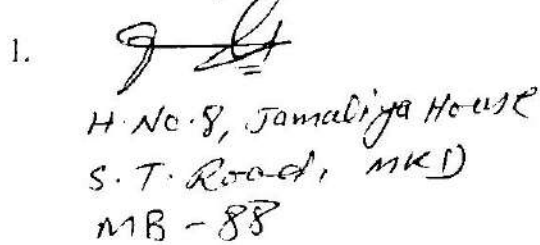 1.
H. No. 8, Jamaliya House
S. T. Road, MKD
MB - 88